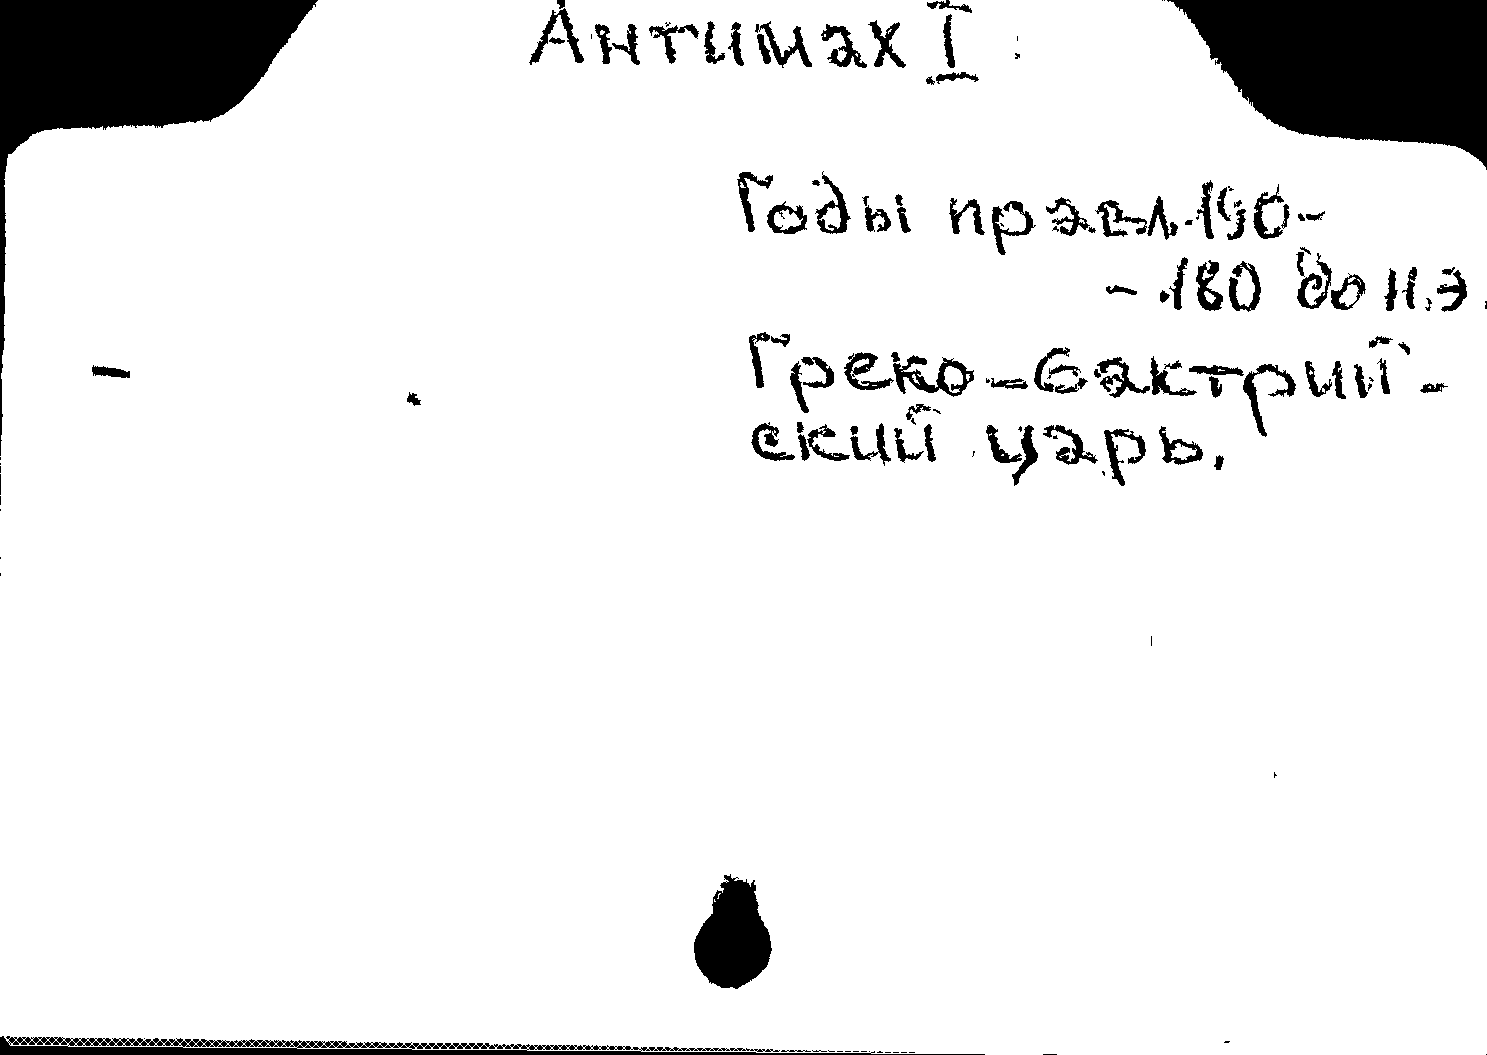 Антимах I
Годы правл. 190-
- 180 до н.э.
Греко-бактрий-
ский царь.